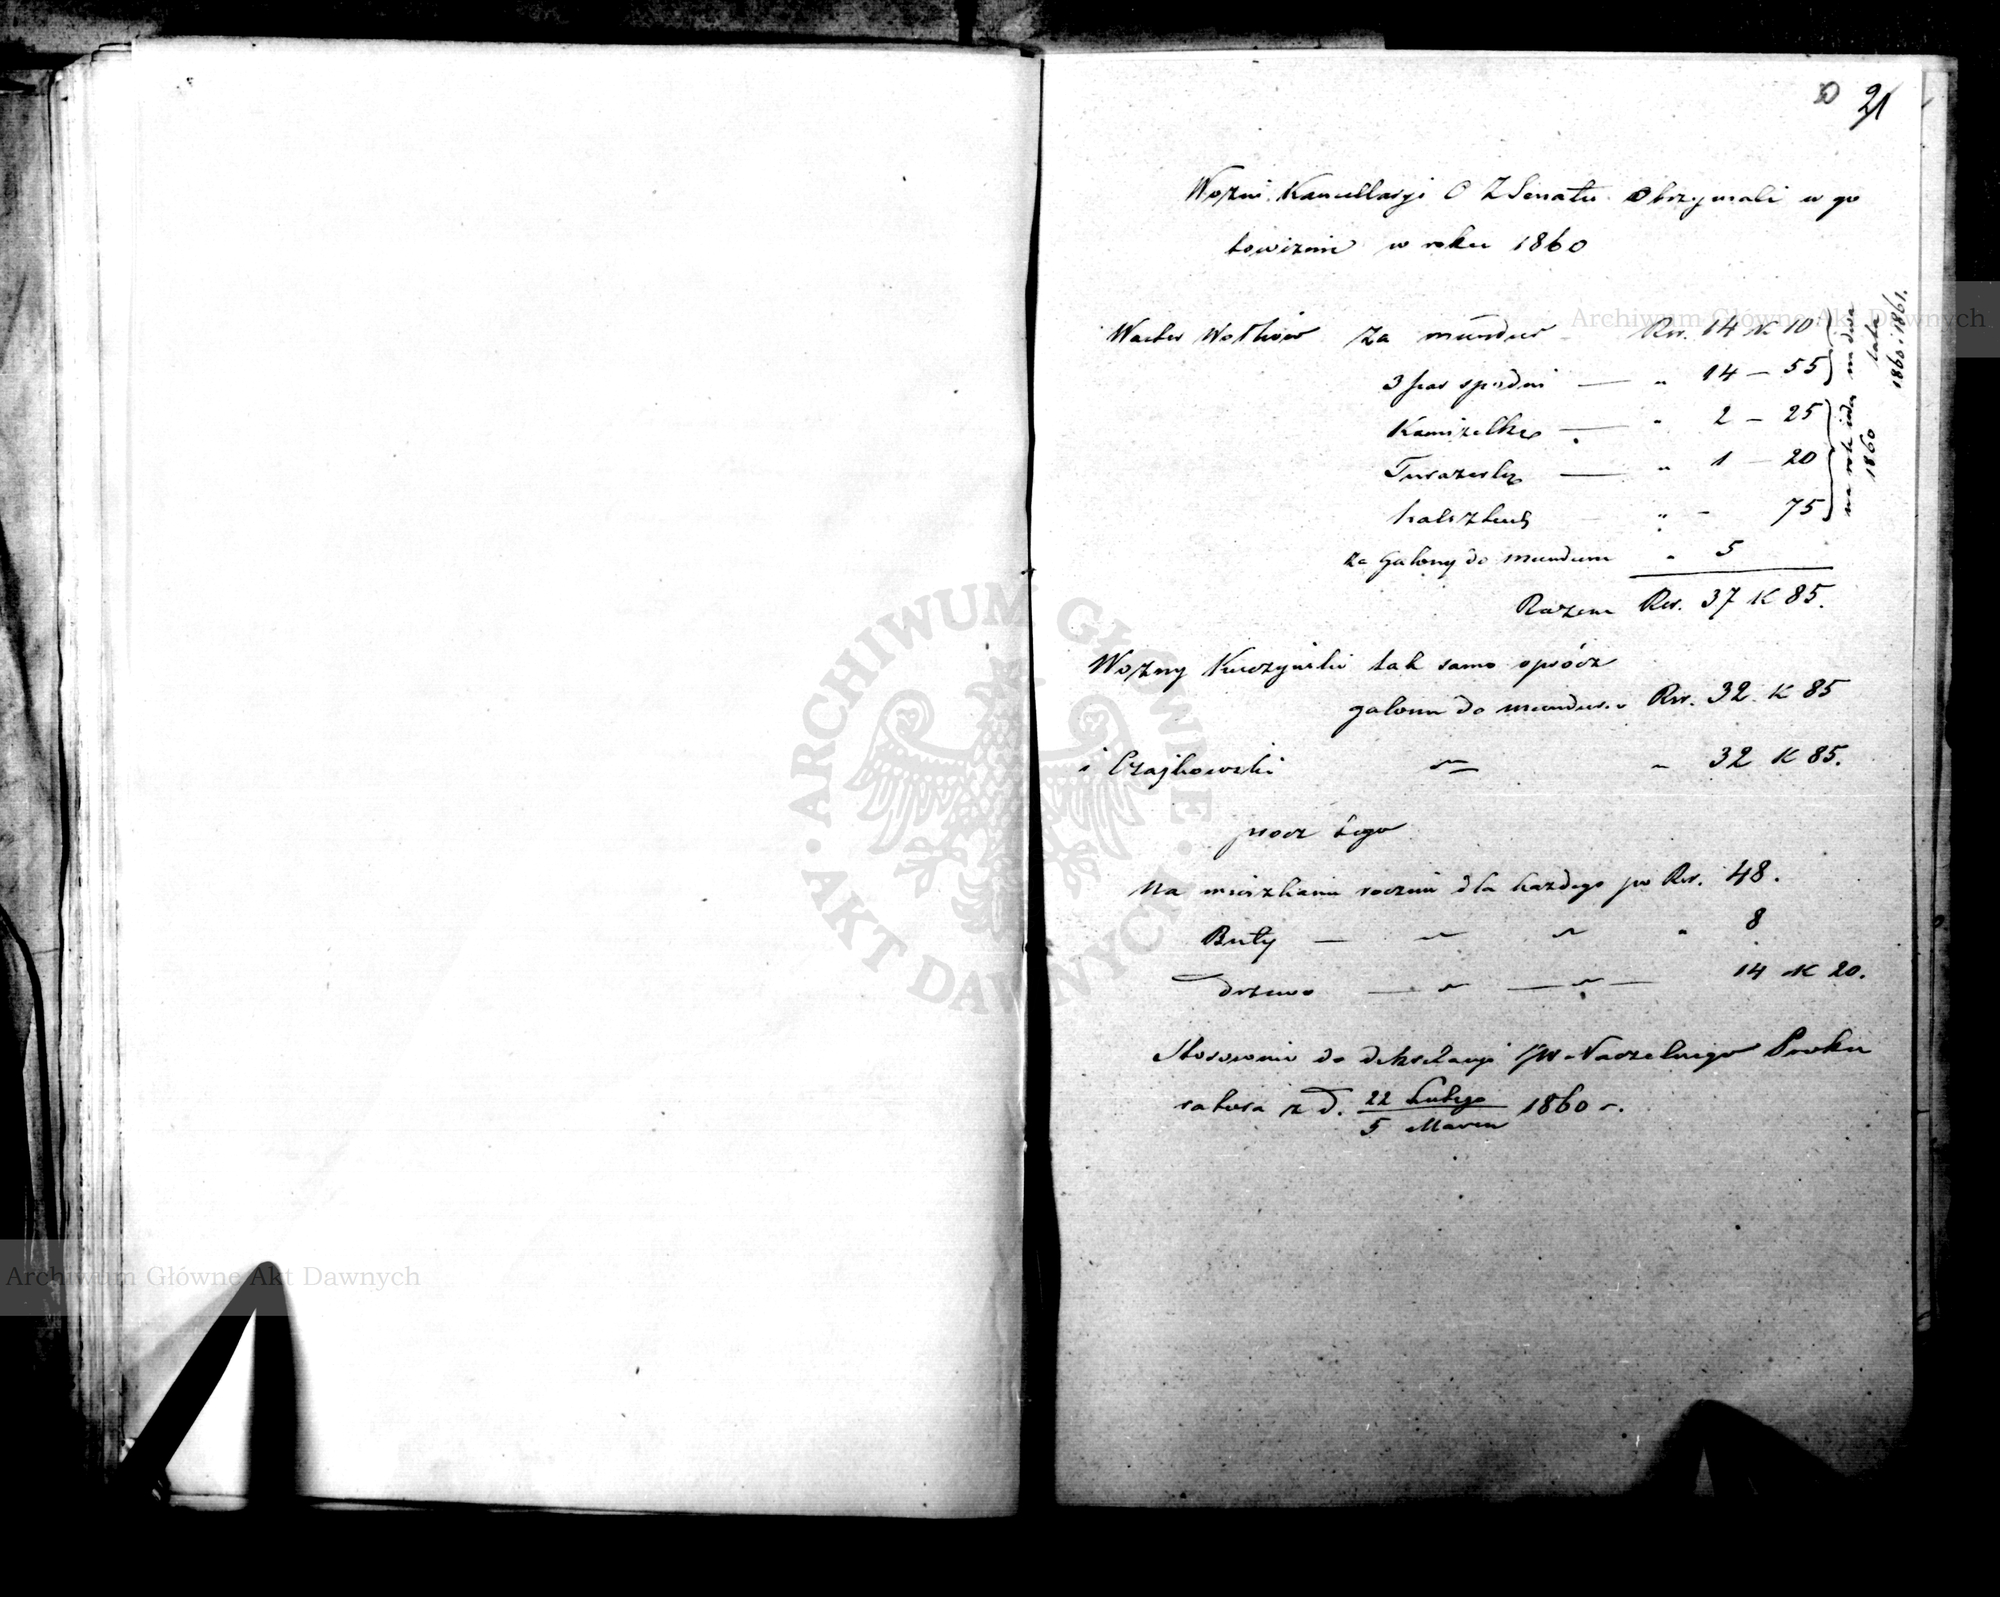 21
Wozni Kancellaryi O Z Senatu otrzymali w go
towiznie w roku 1860
za mundur Rsr. 14 K 10
3 par spodni — „ 14 – 55
Kamizelkę — „ 2 – 25
Furażerkę — „ 1 – 20
halsztuch „ – 75
za galony do munduru „ 5
Razem Rsr. 37 K 85.
na dwa
lata
1860 i 1861.
na rok ieden
1860
Wozny Kuczyński tak samo oprócz
galonu do munduru Rsr. 32 K 85
i Czajkowski „ 32 K 85.
procz tego
Na mieszkanie rocznie dla każdego po Rsr. 48.
Buty — „ „ „ 8
drzewo — „ — „ — 14 K 20.
Stosownie do deklaracji JW Naczelnego Proku
ratora z d. 22 Lutego 1860 r.
5 Marca
Archiwum Główne Akt Dawnych
Archiwum Główne Akt Dawnych
ARCHIWUM GŁÓWNE · AKT DAWNYCH ·